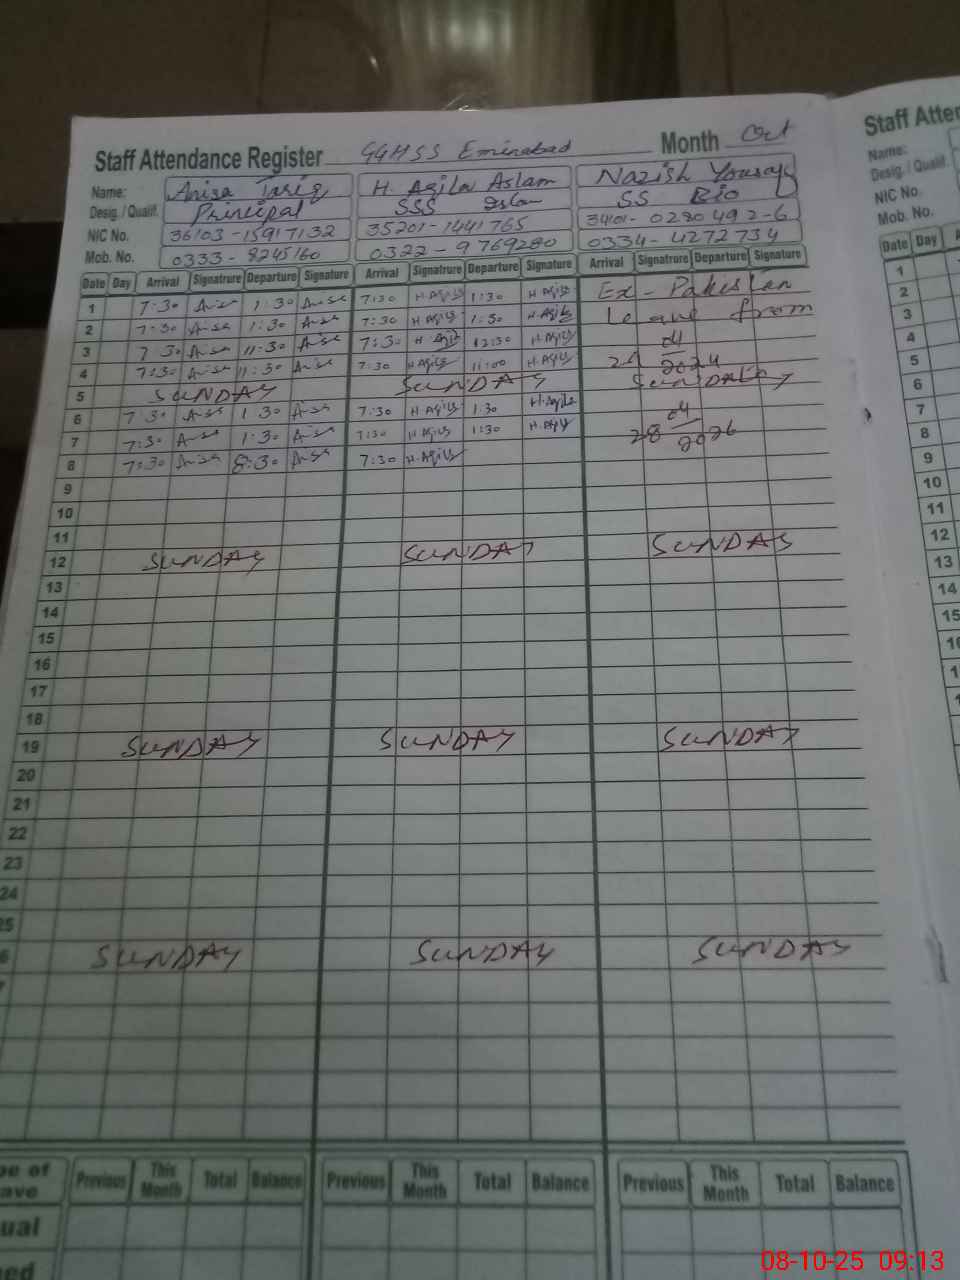 Staff Attendance Register GGHSS Eminabad Month Oct
Name: Anisa Tariq H. Aqila Aslam Nazish Yousaf
Desig. / Qualif. Principal SSS Islam SS Bio
NIC No. 36103-15917132 35201-1441765 3401-0280492-6
Mob. No. 0333-8245160 0322-9769280 0334-4272734
Date Day Arrival Signatrure Departure Signature Arrival Signatrure Departure Signature Arrival Signatrure Departure Signature
1 7:30 Anisa 1:30 Anisa 7:30 H.Aqila 1:30 H.Aqila Ex-Pakistan
2 7:30 Anisa 1:30 Anisa 7:30 H.Aqila 1:30 H.Aqila Leave from
3 7 30 Anisa 11:30 Anisa 7:30 H.Aqila 12:30 H.Aqila 04
4 7:30 Anisa 11:30 Anisa 7:30 H.Aqila 11:00 H.Aqila 29 2024
5 SUNDAY SUNDAY SUNDAY to
6 7 30 Anisa 1 30 Anisa 7:30 H.Aqila 1:30 H.Aqila 04
7 7:30 Anisa 1:30 Anisa 7:30 H.Aqila 1:30 H.Aqila 28 2026
8 7:30 Anisa 8:30 Anisa 7:30 H.Aqila
9
10
11
12 SUNDAY SUNDAY SUNDAY
13
14
15
16
17
18
19 SUNDAY SUNDAY SUNDAY
20
21
22
23
24
25
6 SUNDAY SUNDAY SUNDAY
pe of Previous This Month Total Balance Previous This Month Total Balance Previous This Month Total Balance
ave
ual
ned
Staff Atten
Name:
Desig. / Qualif.
NIC No.
Mob. No.
Date Day
1
2
3
4
5
6
7
8
9
10
11
12
13
14
15
08-10-25 09:13